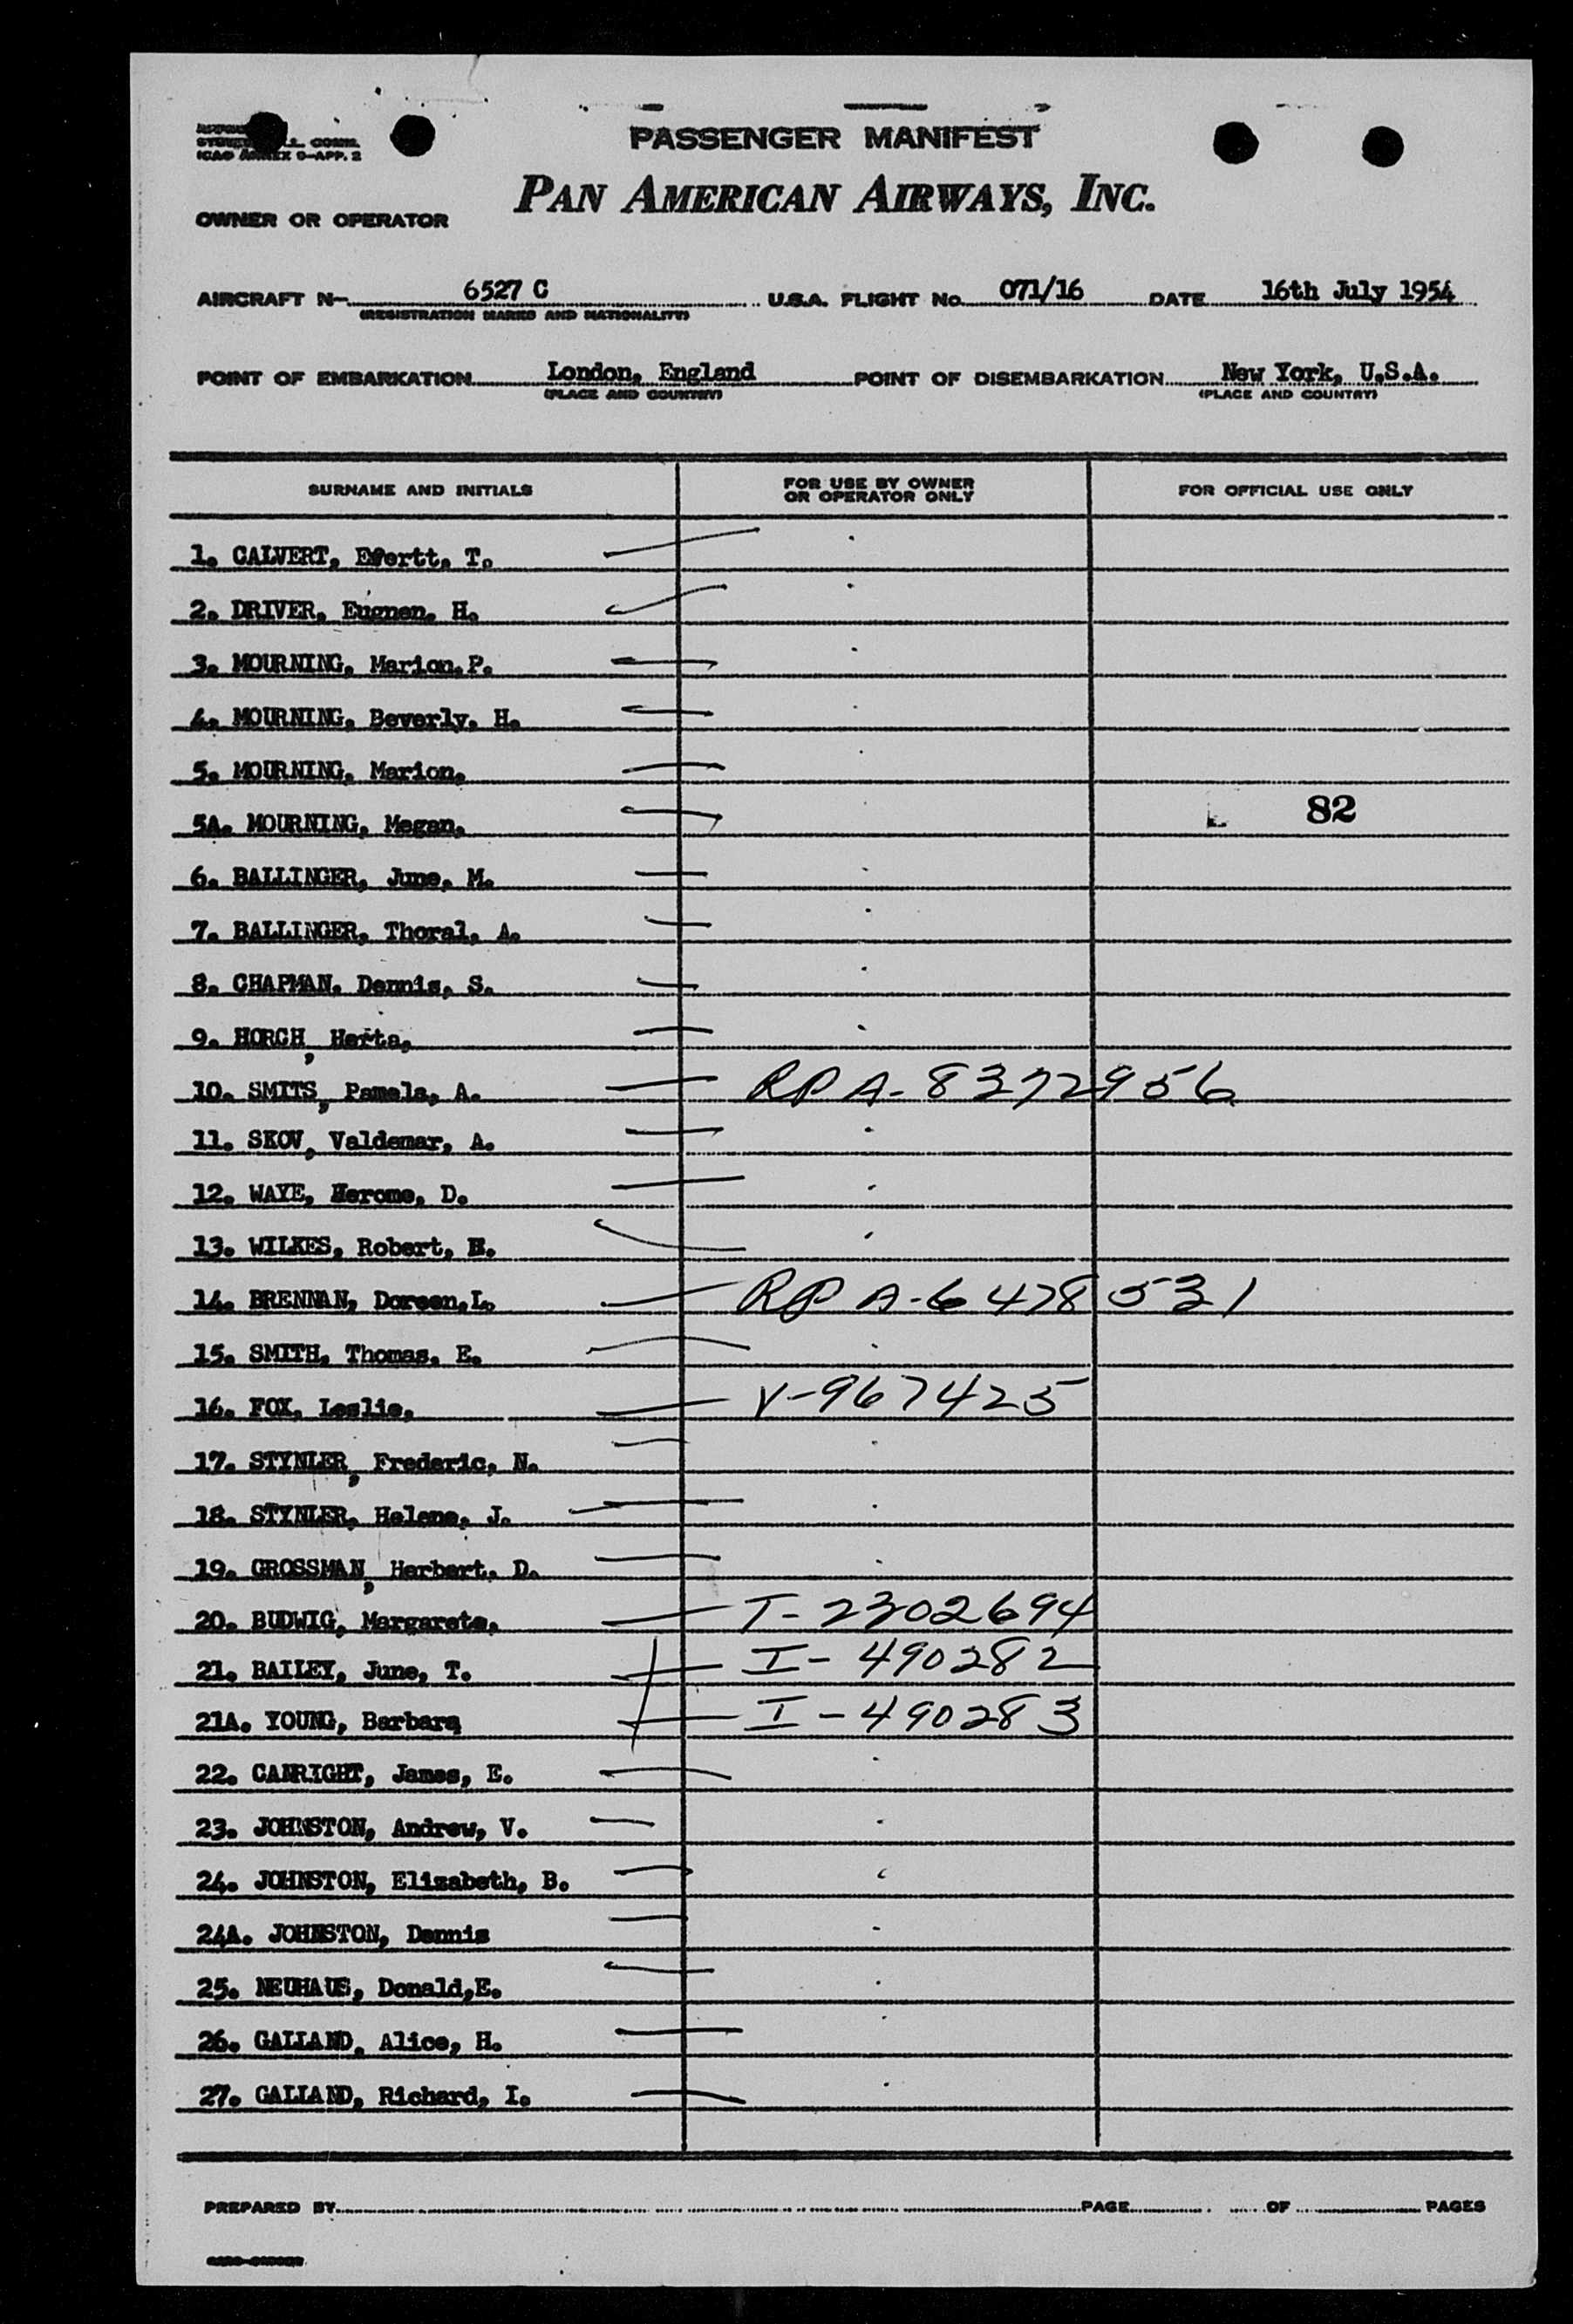 ICAO ANNEX 9-APP. 2
PASSENGER MANIFEST
PAN AMERICAN AIRWAYS, INC.
OWNER OR OPERATOR
AIRCRAFT N- 6527 C U.S.A. FLIGHT No. 071/16 DATE 16th July 1954
(REGISTRATION MARKS AND NATIONALITY)
POINT OF EMBARKATION London, England POINT OF DISEMBARKATION New York, U.S.A.
(PLACE AND COUNTRY) (PLACE AND COUNTRY)
SURNAME AND INITIALS FOR USE BY OWNER OR OPERATOR ONLY FOR OFFICIAL USE ONLY
1. CALVERT, Evertt, T.
2. DRIVER, Eugnen, H.
3. MOURNING, Marion.P.
4. MOURNING, Beverly, H.
5. MOURNING, Marion,
5A. MOURNING, Megan, 82
6. BALLINGER, June, M.
7. BALLINGER, Thoral, A.
8. CHAPMAN, Dennis, S.
9. HORCH, Herta,
10. SMITS, Pamela, A. RP A-8372956
11. SKOV, Valdemar, A.
12. WAYE, Herome, D.
13. WILKES, Robert, H.
14. BRENNAN, Doreen,L. RP A-6478531
15. SMITH, Thomas. E.
16. FOX, Leslie, V-967425
17. STYNLER, Frederic, N.
18. STYNLER, Helene, J.
19. GROSSMAN, Herbert, D.
20. BUDWIG, Margarete, T-2302694
21. BAILEY, June, T. I-490282
21A. YOUNG, Barbara I-490283
22. CANRIGHT, James, E.
23. JOHNSTON, Andrew, V.
24. JOHNSTON, Elizabeth, B.
24A. JOHNSTON, Dennis
25. NEUHAUS, Donald,E.
26. GALLAND, Alice, H.
27. GALLAND, Richard, I.
PREPARED BY PAGE OF PAGES